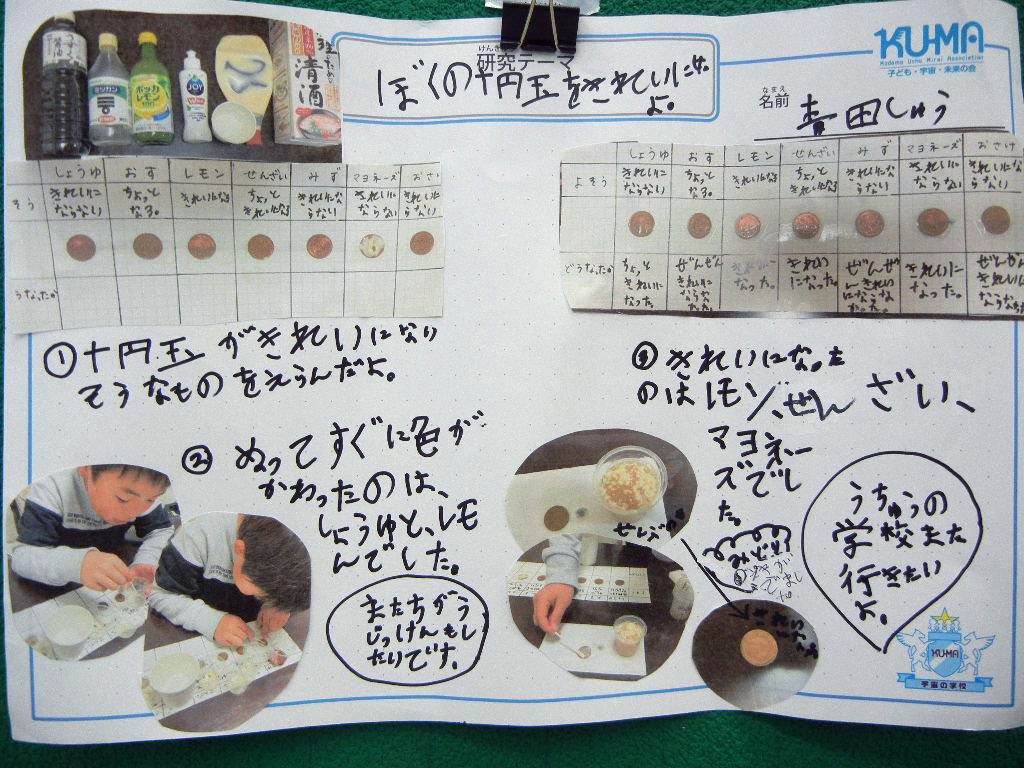 研究テーマ
けんきゅう
ぼくの十円玉をきれいに
よ。
KU-MA
Kodomo Uchu Mirai Association
子ども・宇宙・未来の会
なまえ
名前
吉田しゅう
ミツカン
ポッカ
レモン
JOY
清酒
しょうゆ おす レモン せんざい みず マヨネーズ おさけ
きれいにならない ちょっとなる。 きれいになる ちょっときれいになる きれいにならない きれいにならない きれいにならない
うなった。
しょうゆ おす レモン せんざい みず マヨネーズ おさけ
よそう きれいにならない ちょっとなる。 きれいになる ちょっときれいになる きれいにならない きれいにならない きれいにならない
どうなった。 ちょっときれいになった。 ぜんぜんきれいにならなかった。 なった。 きれいになった。 ぜんぜんきれいにならなかった。 きれいになった。 ぜんぜんきれいにならなかった
①十円玉がきれいになり
そうなものをえらんだよ。
②ぬってすぐに色が
かわったのは、
しょうゆと、レモ
んでした。
またちがう
じっけんもし
たいです。
③きれいになった
のはレモン、せんざい、
マヨネー
ズでし
た。
ぜんぶ
みどり
きれい
になった
うちゅうの
学校また
行きたい
よ。
KUMA
宇宙の学校